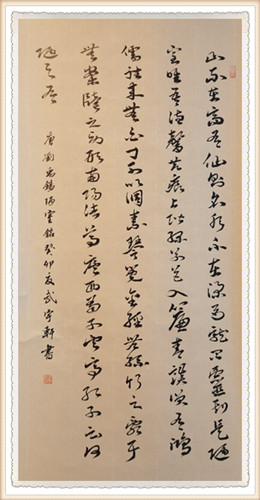 山不在高有仙則名水不在深有龍則靈斯是陋
室唯吾德馨苔痕上階綠草色入簾青談笑有鴻
儒往來無白丁可以調素琴閱金經無絲竹之亂耳
無案牘之勞形南陽諸葛廬西蜀子雲亭孔子云何
陋之有
唐劉禹錫陋室銘癸卯夏武宇軒書